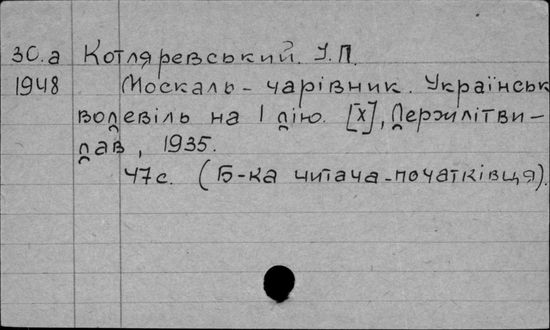 30.а Котляревський. І.П.
1948 Москаль-чарівник. Українськ
водевіль на 1 дію. [Х], Держлітви-
дав, 1935.
47с. (Б-ка читача-початківця).